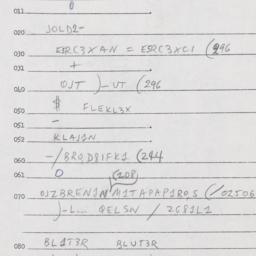 011 0
020 JOLD2-
030 ESRC3XAN = ESRC3XC1 (296
031 +
040 OJT )-UT (296
050 $ FLEKL3X
051 -
052 KLAJ1N
060 -/BRQD8IFK1 (244
061 0
(208)
070 OJZBRENJN M1TAPAP1RQS (/02506
)-L... QELSN / 2G81L1
080 BL1T3R BLUT3R